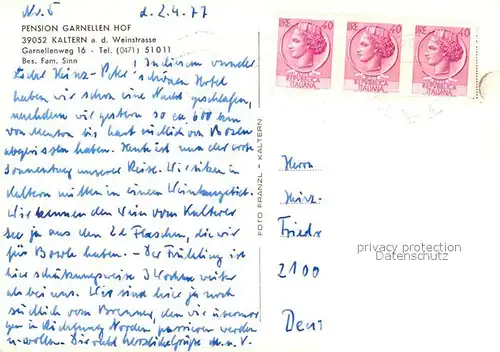 No. 5 d. 2.4.77
PENSION GARNELLEN HOF
39052 KALTERN a. d. Weinstrasse
Garnellenweg 16 - Tel. (0471) 51011
Bes. Fam. Sinn
In diesem wunder-
Lieber Heinz-Peter! schönen Hotel
haben wir schon eine Nacht geschlafen,
nachdem wir gestern so ca 600 km
von Menton bis hart südlich von Bozen
abgerissen haben. Heute ist nun der erste
Sonnentag unserer Reise. Wir sitzen in
Kaltern mitten in einem Weinbaugebiet.
Wir kennen den Wein vom Kalterer
See ja aus den 2 l Flaschen, die wir
für Bowle haben. - Der Frühling ist
hier schätzungsweise 3 Wochen weiter
als bei uns. Wir sind hier ja noch
südlich vom Brenner, den wir übermor-
gen in Richtung Norden passieren werden
u. wollen. Die recht herzliche Grüße M. u. V.
FOTO FRÄNZL - KALTERN
LIRE 40
REPVBBLICA
ITALIANA
LIRE 40
REPVBBLICA
ITALIANA
LIRE 40
REPVBBLICA
ITALIANA
Herrn
Heinz-
Friedr
2100
Deut
privacy protection
Datenschutz